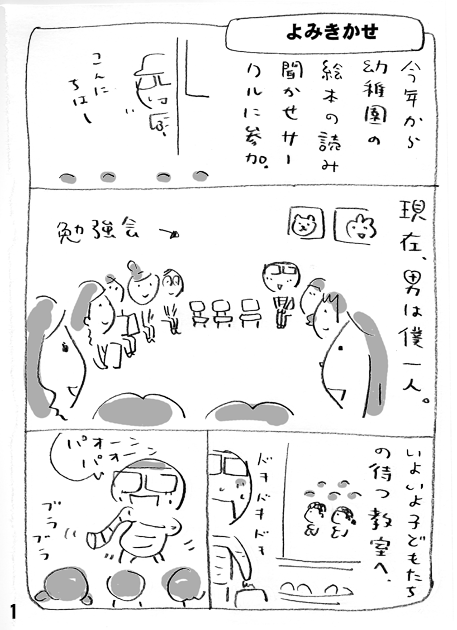 よみきかせ
今年から
幼稚園の
絵本の読み
聞かせサー
クルに参加。
こんに
ちはー
現在、男は僕一人。
勉強会
いよいよ子どもたち
の待つ教室へ。
ドキドキドキ
パオーン
パオーン
ブラ
ブラ
1